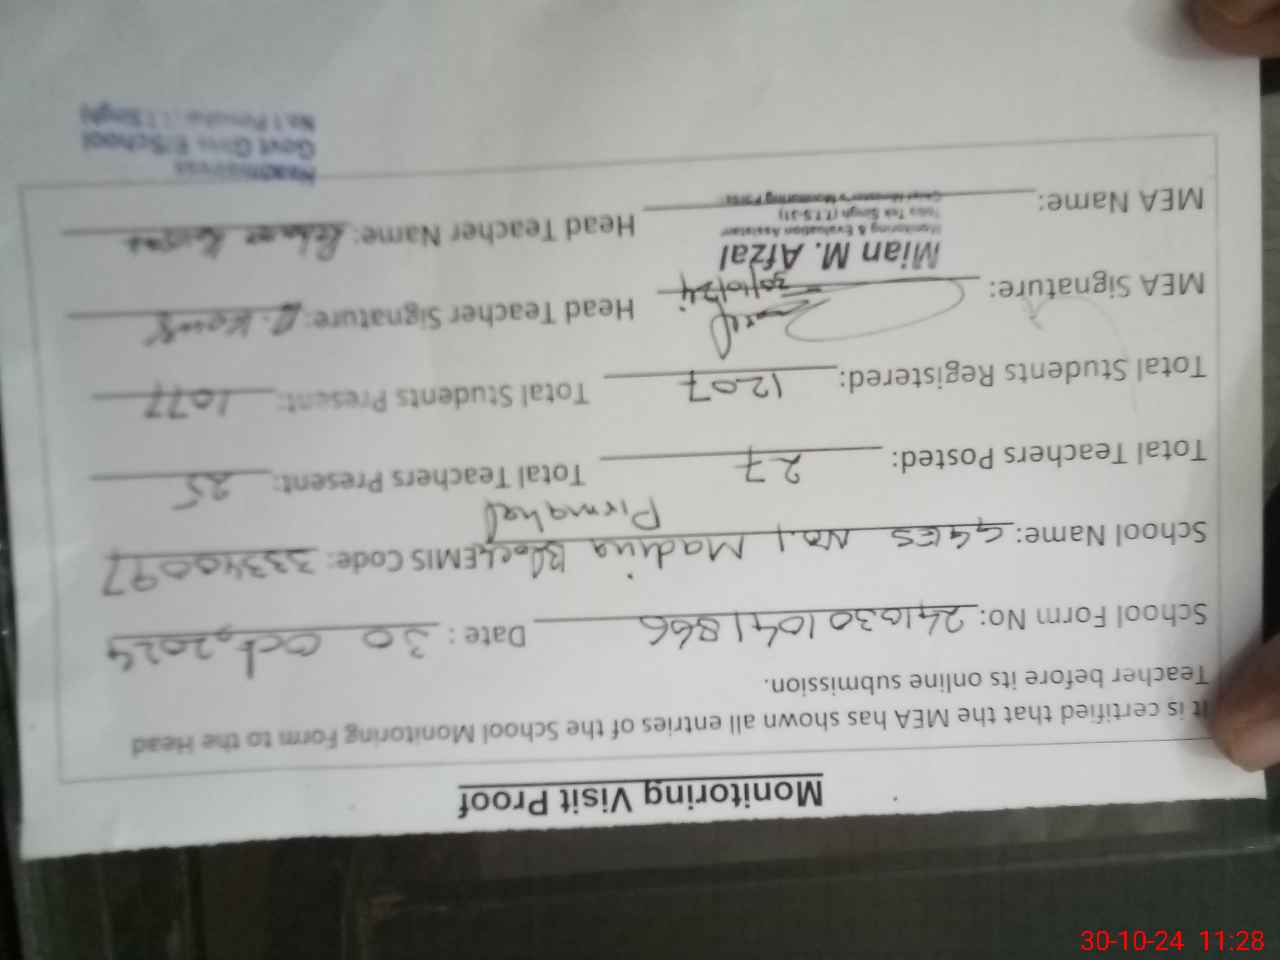 Monitoring Visit Proof
It is certified that the MEA has shown all entries of the School Monitoring Form to the Head
Teacher before its online submission.
School Form No: 2410301041866 Date: 30 Oct, 2024
School Name: GGES No.1 Madina Block EMIS Code: 33340097
Pirmahal
Total Teachers Posted: 27 Total Teachers Present: 25
Total Students Registered: 1207 Total Students Present: 1077
MEA Signature: 30/10/24 Head Teacher Signature:
Mian M. Afzal
Monitoring & Evaluation Assistant
Toba Tek Singh (T.T.S-31)
Chief Minister's Monitoring Force
MEA Name: Head Teacher Name:
Headmistress
Govt Girls E/School
No.1 Pirmahal T.T.Singh
30-10-24 11:28